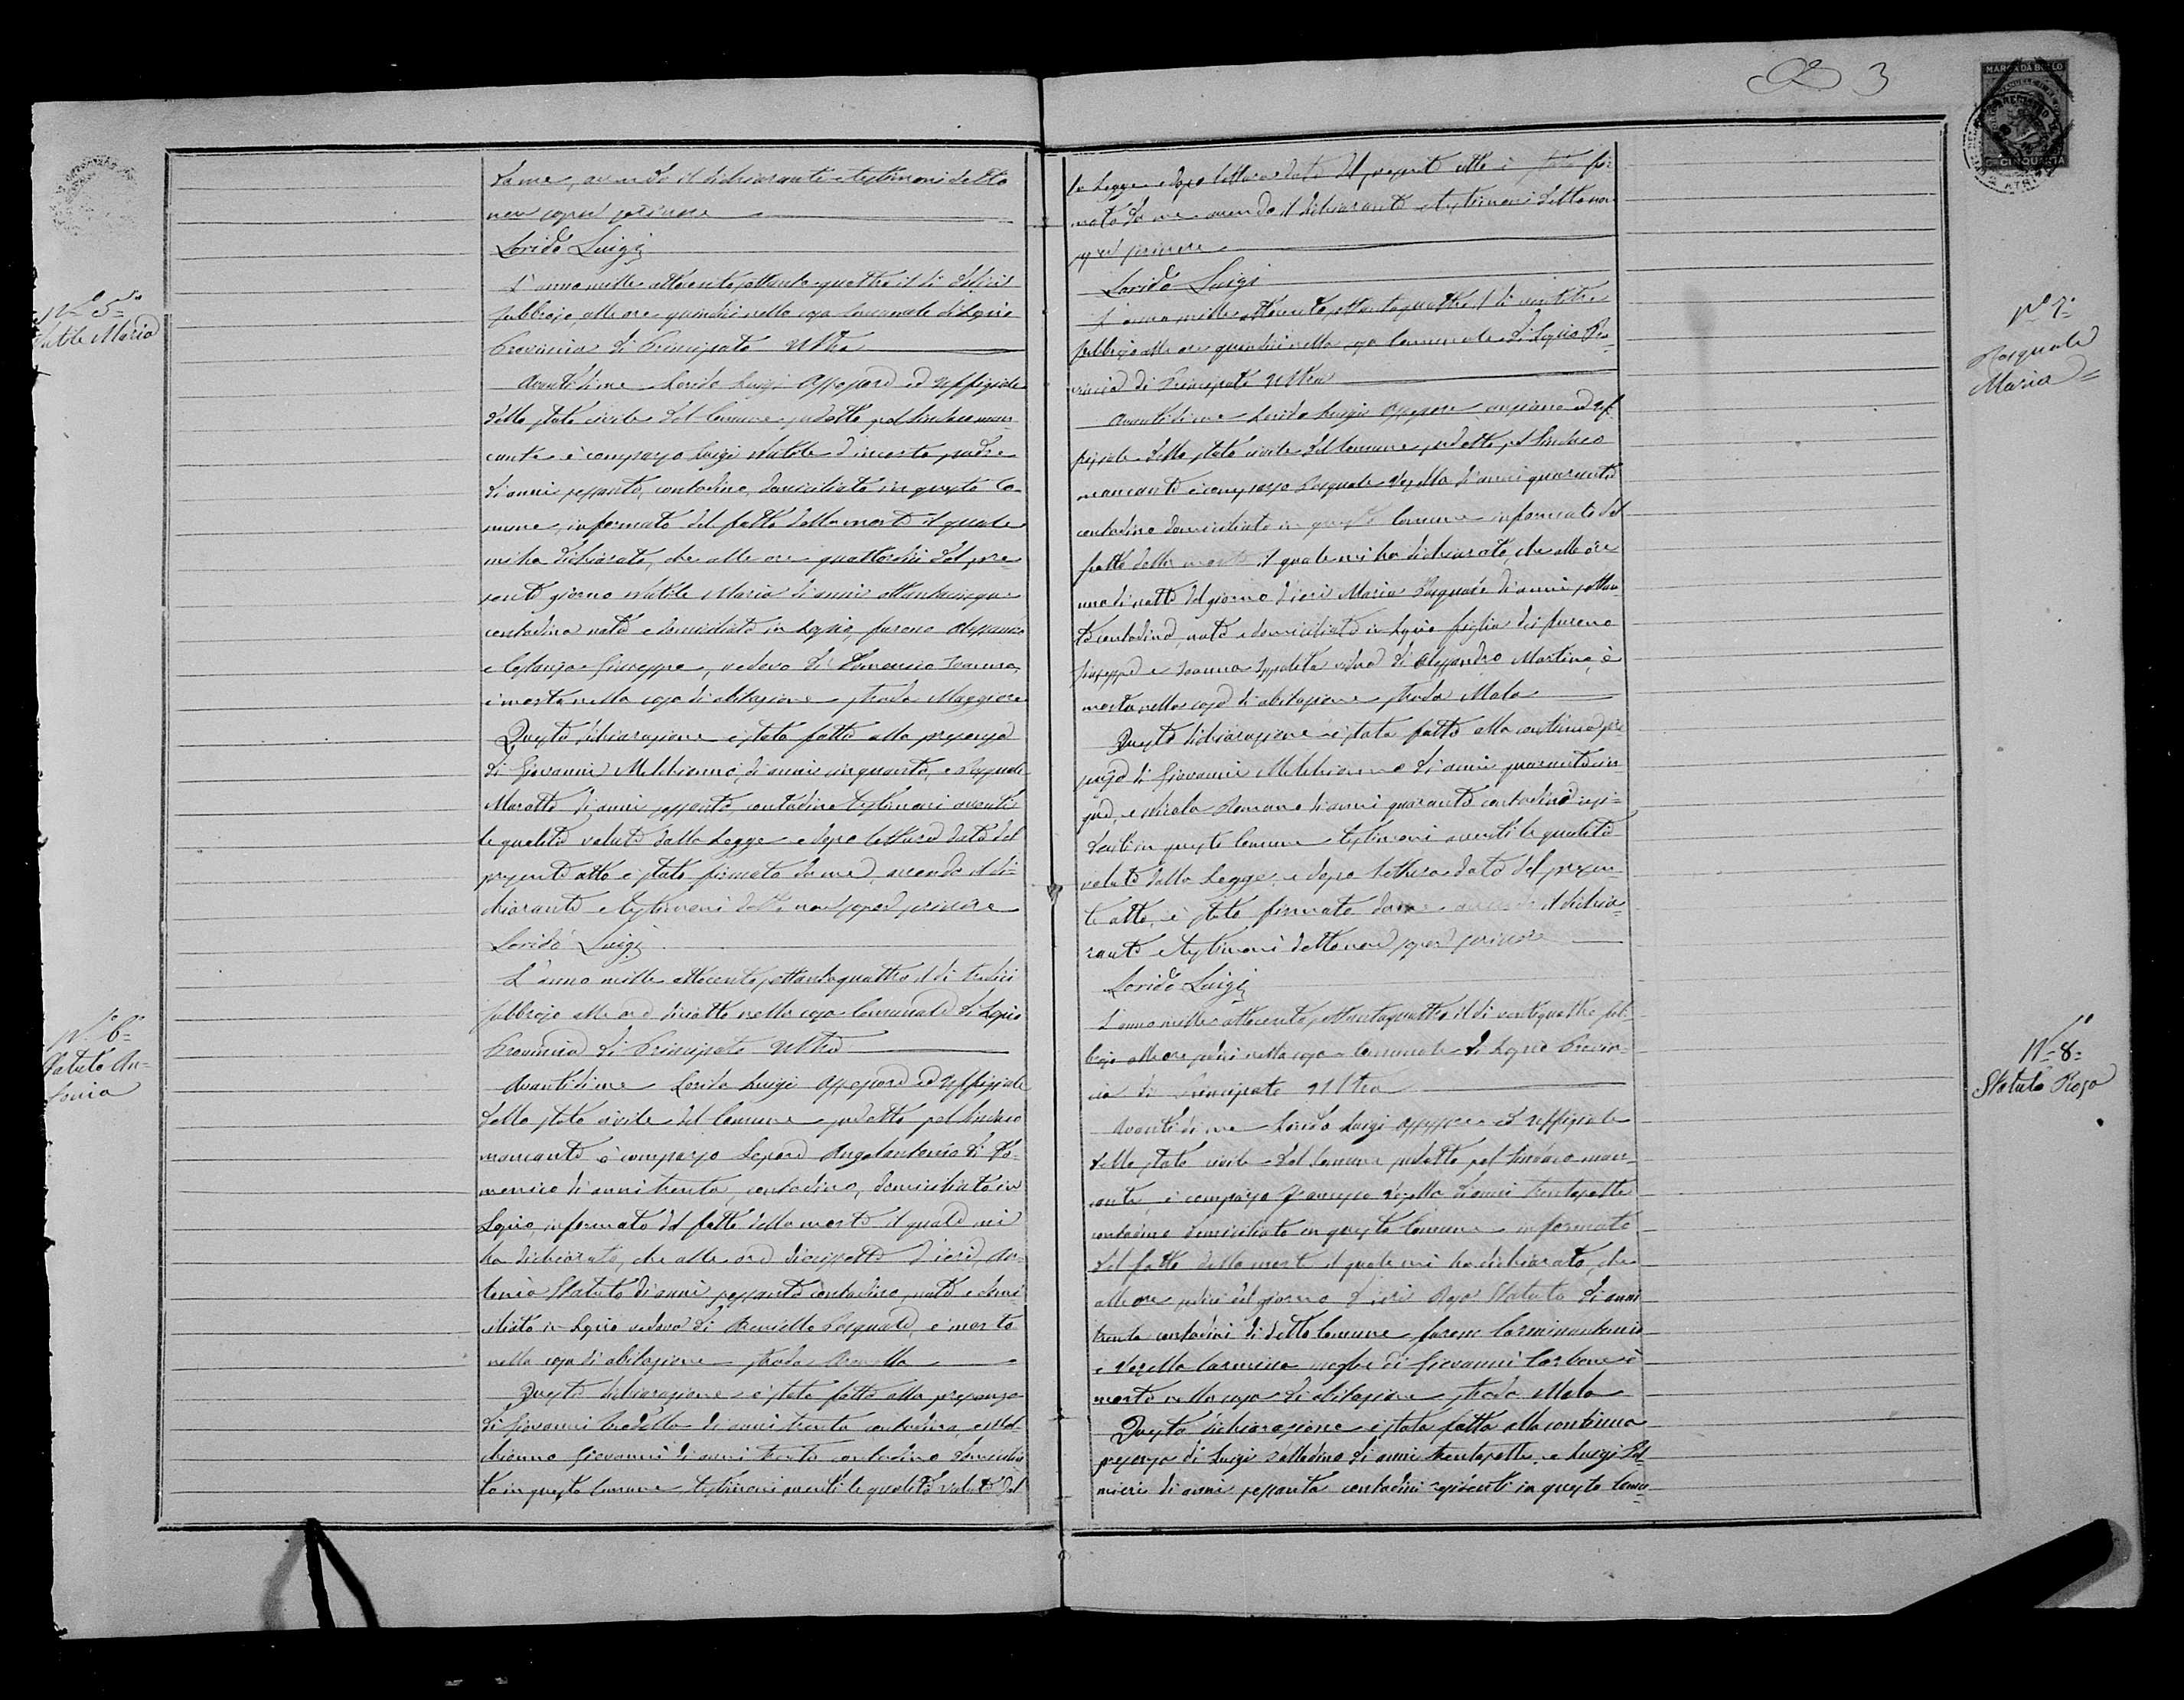 da me, avendo il dichiarante e testimoni detto
non saper scrivere
Lorido Luigi
N. 5
Maria
L'anno mille ottocento settantaquattro il dì
febbrajo, alle ore quindici nella casa Comunale di Lapio
Provincia di Principato Ultra
Avanti di me Lorido Luigi Assessore ed Uffiziale
dello stato civile del Comune sudetto pel Sindaco man-
cante è comparso Luigi d'incerto padre
di anni sessanta, contadino, domiciliato in questo Co-
mune, informato del fatto della morte il quale
mi ha dichiarato, che alle ore quattordici del pre-
sente giorno Maria di anni
contadina nata e domiciliata in Lapio, furono
e Costanza Giuseppe, vedova di Domenico
è morta nella casa di abitazione strada Maggiore
Questa dichiarazione è stata fatta alla presenza
di Giovanni Melchionno, di anni cinquanta, e Pasquale
di anni sessanta, contadini testimoni aventi
le qualità volute dalla Legge e dopo lettura data del
presente atto è stato firmato da me, avendo il di-
chiarante e testimoni detto non saper scrivere
Lorido Luigi
N. 6
Statuto An-
tonia
L'anno mille ottocento settantaquattro il dì tredici
febbrajo alle ore diciotto nella casa Comunale di Lapio
Provincia di Principato Ultra
Avanti di me Lorido Luigi Assessore ed Uffiziale
dello stato civile del Comune sudetto pel Sindaco
mancante è comparso Lepore Angelantonio di Do-
menico di anni trenta, contadino, domiciliato in
Lapio, informato del fatto della morte il quale mi
ha dichiarato, che alle ore diciasette d'ieri, An-
tonia Statuto di anni sessanta contadina, nata e domi-
ciliata in Lapio vedova di Pasquale, è morta
nella casa di abitazione strada
Questa dichiarazione è stata fatta alla presenza
di Giovanni di anni trenta contadino, e Mel-
chionno Giovanni di anni trenta contadino domicilia-
to in questo Comune testimoni aventi le qualità volute dal
3
MARCA DA BOLLO
CINQUANTA
la Legge e dopo lettura data del presente atto è stato fir-
mato da me avendo il dichiarante e testimoni detto non
saper scrivere
Lorido Luigi
N. 7
Pasquale
Maria
L'anno mille ottocento settantaquattro il dì ventitre
febbrajo alle ore quindici nella casa Comunale di Lapio Pro-
vincia di Principato Ultra
Avanti di me Lorido Luigi Assessore anziano ed Uf-
fiziale dello stato civile del Comune sudetto, pel Sindaco
mancante è comparso Pasquale Vozella di anni quaranta
contadino domiciliato in questo Comune informato del
fatto della morte il quale mi ha dichiarato, che alle ore
una di notte del giorno d'ieri Maria Pasquale di anni settan-
ta contadina, nata e domiciliata in Lapio figlia dei furono
Giuseppe e Ippolita vedova di Alessandro Martino, è
morta nella casa di abitazione strada Mala
Questa dichiarazione è stata fatta alla continua pre-
senza di Giovanni Melchionno di anni quarantacin-
que, e Nicola Romano di anni quaranta contadini resi-
denti in questo Comune testimoni aventi le qualità
volute dalla Legge, e dopo lettura data del presen-
te atto, è stato firmato da me avendo il dichia-
rante e testimoni detto non saper scrivere
Lorido Luigi
N. 8
Statuto Rosa
L'anno mille ottocento settantaquattro il dì ventiquattro feb-
brajo alle ore sedici nella casa Comunale di Lapio Provin-
cia di Principato Ultra
Avanti di me Lorido Luigi Assessore ed Uffiziale
dello stato civile del Comune sudetto pel Sindaco man-
cante, è comparso Francesco Vozella di anni trentasette
contadino domiciliato in questo Comune informato
del fatto della morte il quale mi ha dichiarato, che
alle ore sedici del giorno d'ieri Rosa Statuto di anni
trenta contadini di detto Comune furono Carminantonio
e Vozella Carmina moglie di Giovanni Carbone è
morta nella casa di abitazione strada Mala
Questa dichiarazione è stata fatta alla continua
presenza di Luigi di anni trentasette, e Luigi Pal-
mieri di anni sessanta contadini residenti in questo Comu-